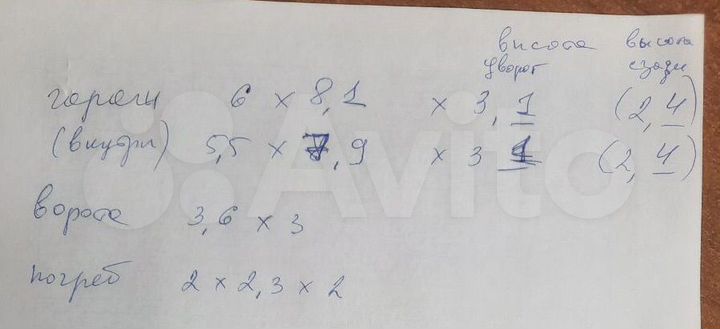 высота высота
у ворот сзади
гараги 6 x 8,1 x 3,1 (2,4)
(внутри) 5,5 x 7,9 x 3 1 (2,4)
ворота 3,6 x 3
погреб 2 x 2,3 x 2
Avito